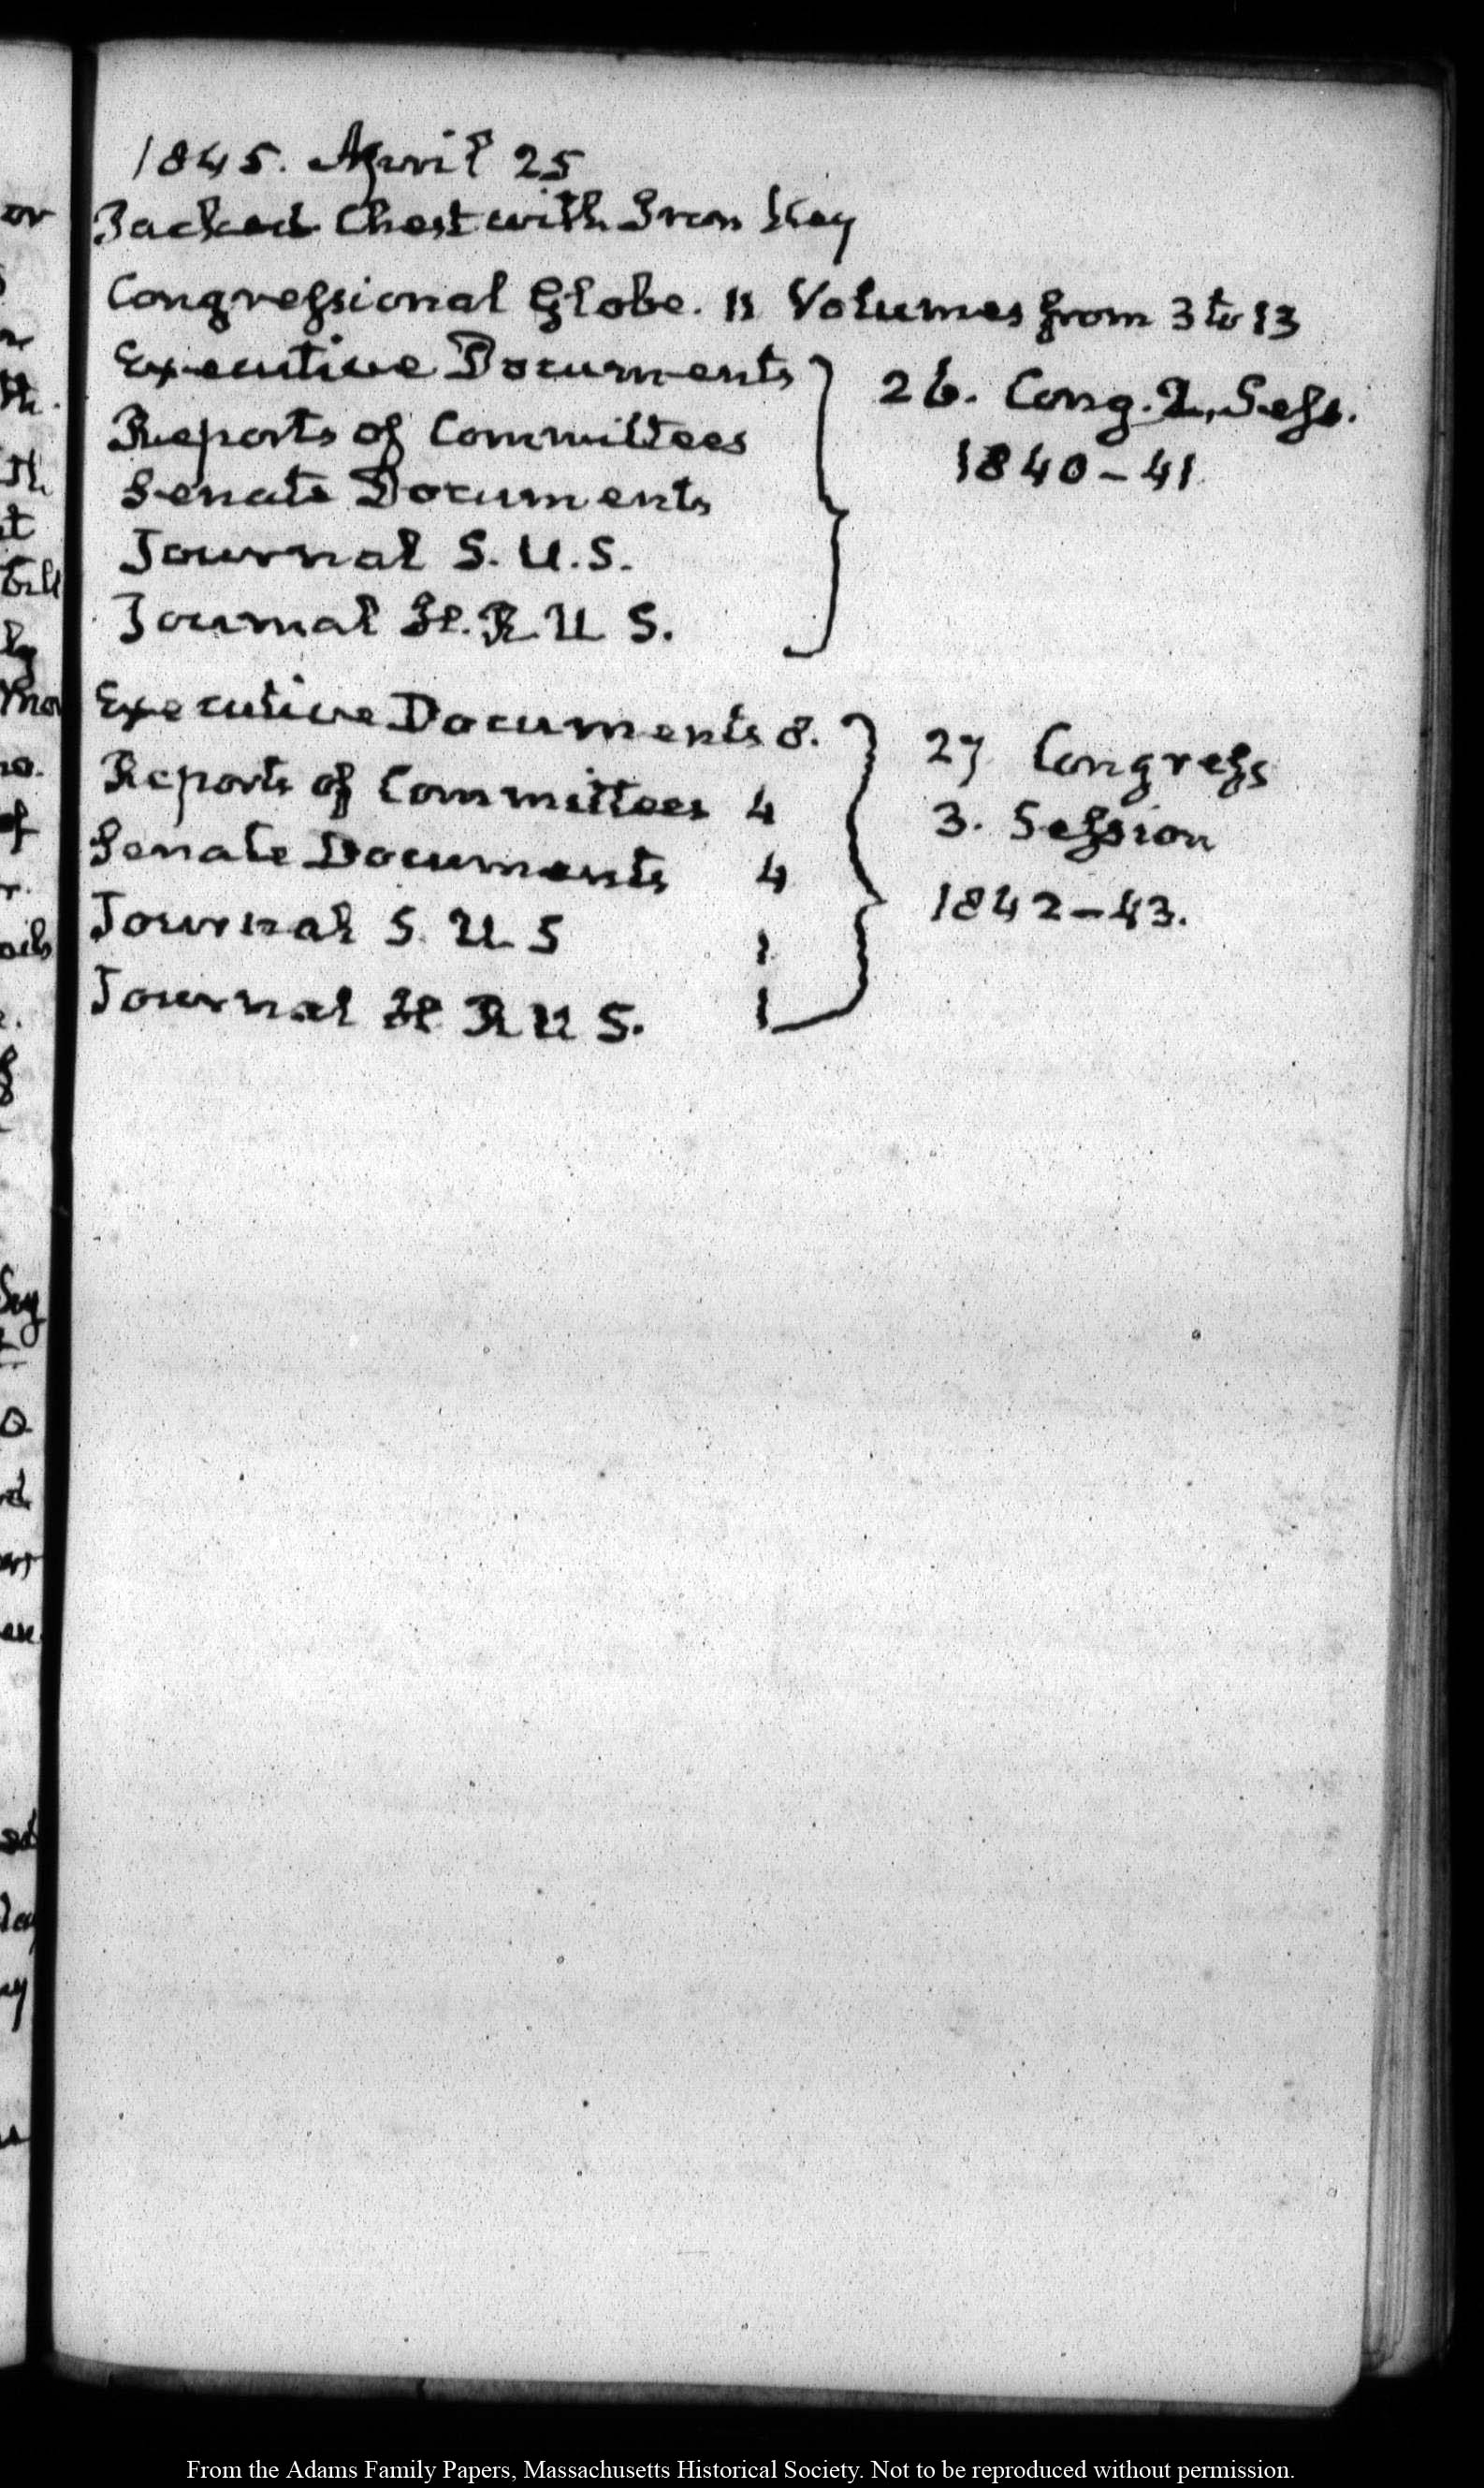 1845. April 25
Packed Chest with Iron Key
Congressional Globe. 11 Volumes from 3 to 13
Executive Documents
Reports of Committees
Senate Documents
Journal S. U. S.
Journal H. R U S.
26. Cong. 2. Sess.
1840-41
Executive Documents 8.
Reports of Committees 4
Senate Documents 4
Journal S. U S 1
Journal H R U S. 1
27 Congress
3. Session
1842-43.
From the Adams Family Papers, Massachusetts Historical Society. Not to be reproduced without permission.